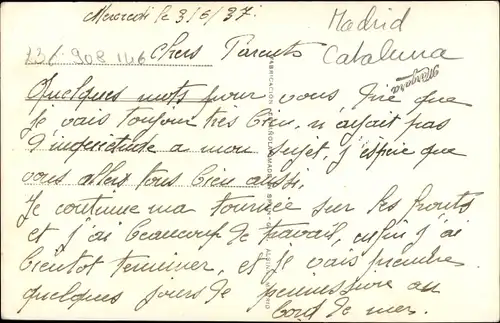 Mercredi le 3/6/37.
Madrid
Cataluna
Chers Parents
Quelques mots pour vous dire que
je vais toujour très bien, n'ayait pas
d'inquiétude a mon sujet, j'espère que
vous allez tous bien aussi.
Je continue ma tournée sur les fronts
et j'ai beaucoup de travail, enfin j'ai
bientot terminer, et je vais prendre
quelques jours de permission au
bord de mer.